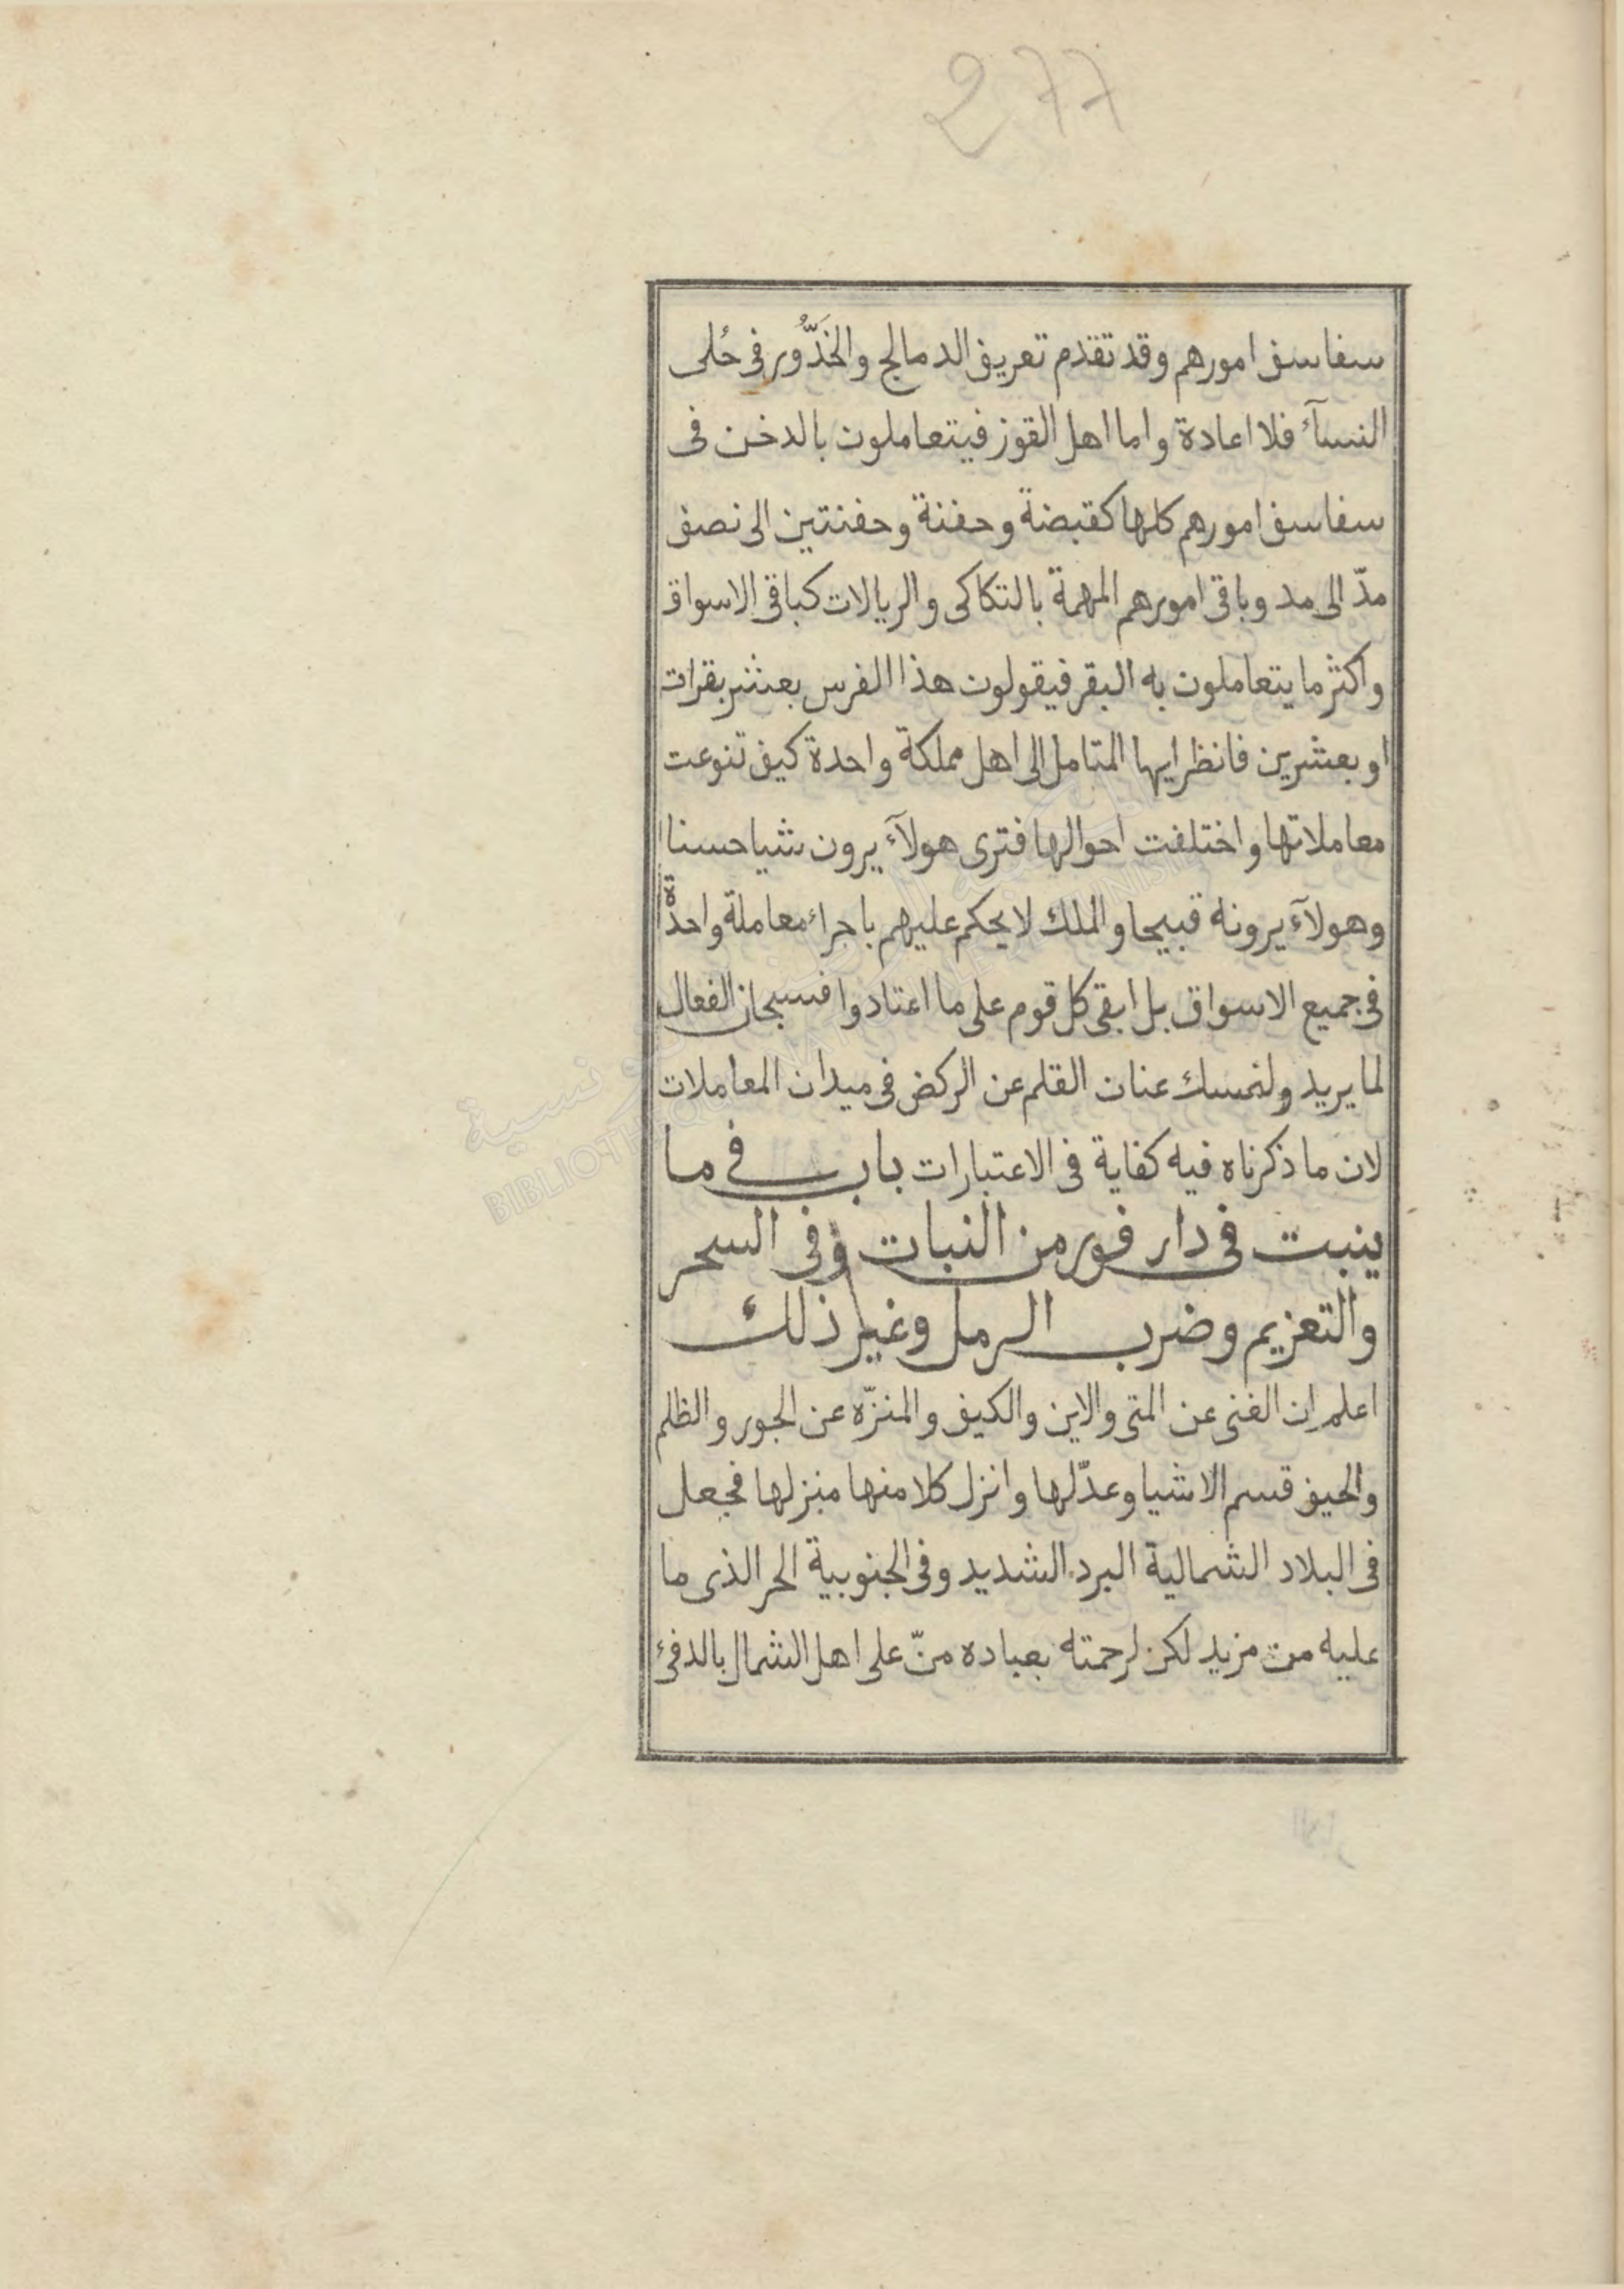 277
سفاسف امورهم وقد تقدم تعريف الدمالج والخَدُّور فى حُلى
النسآء فلا اعادة واما اهل القوز فيتعاملون بالدخن فى
سفاسف امورهم كلها كقبضة وحفنة وحفنتين الى نصف
مدّ الى مد وباقى امورهم المهمة بالتكاكى والريالات كباقى الاسواق
واكثر ما يتعاملون به البقر فيقولون هذا الفرس بعشر بقرات
او بعشرين فانظر ايها المتامل الى اهل مملكة واحدة كيف تنوعت
معاملاتها واختلفت احوالها فترى هولآء يرون شيا حسنا
وهولآء يرونه قبيحا والملك لا يحكم عليهم باجراء معاملة واحدة
فى جميع الاسواق بل ابقى كل قوم على ما اعتادوا فسبحان الفعال
لما يريد ولنمسك عنان القلم عن الركض فى ميدان المعاملات
لان ما ذكرناه فيه كفاية فى الاعتبارات باب فى ما
ينبت فى دار فور من النبات وفى السحر
والتعزيم وضرب الرمل وغير ذلك
اعلم ان الغنى عن المتى والاين والكيف والمنزّه عن الجور والظلم
والحيف قسم الاشيا وعدّلها وانزل كلا منها منزلها فجعل
فى البلاد الشمالية البرد الشديد وفى الجنوبية الحر الذى ما
عليه من مزيد لكن لرحمته بعباده منّ على اهل الشمال بالدفئ